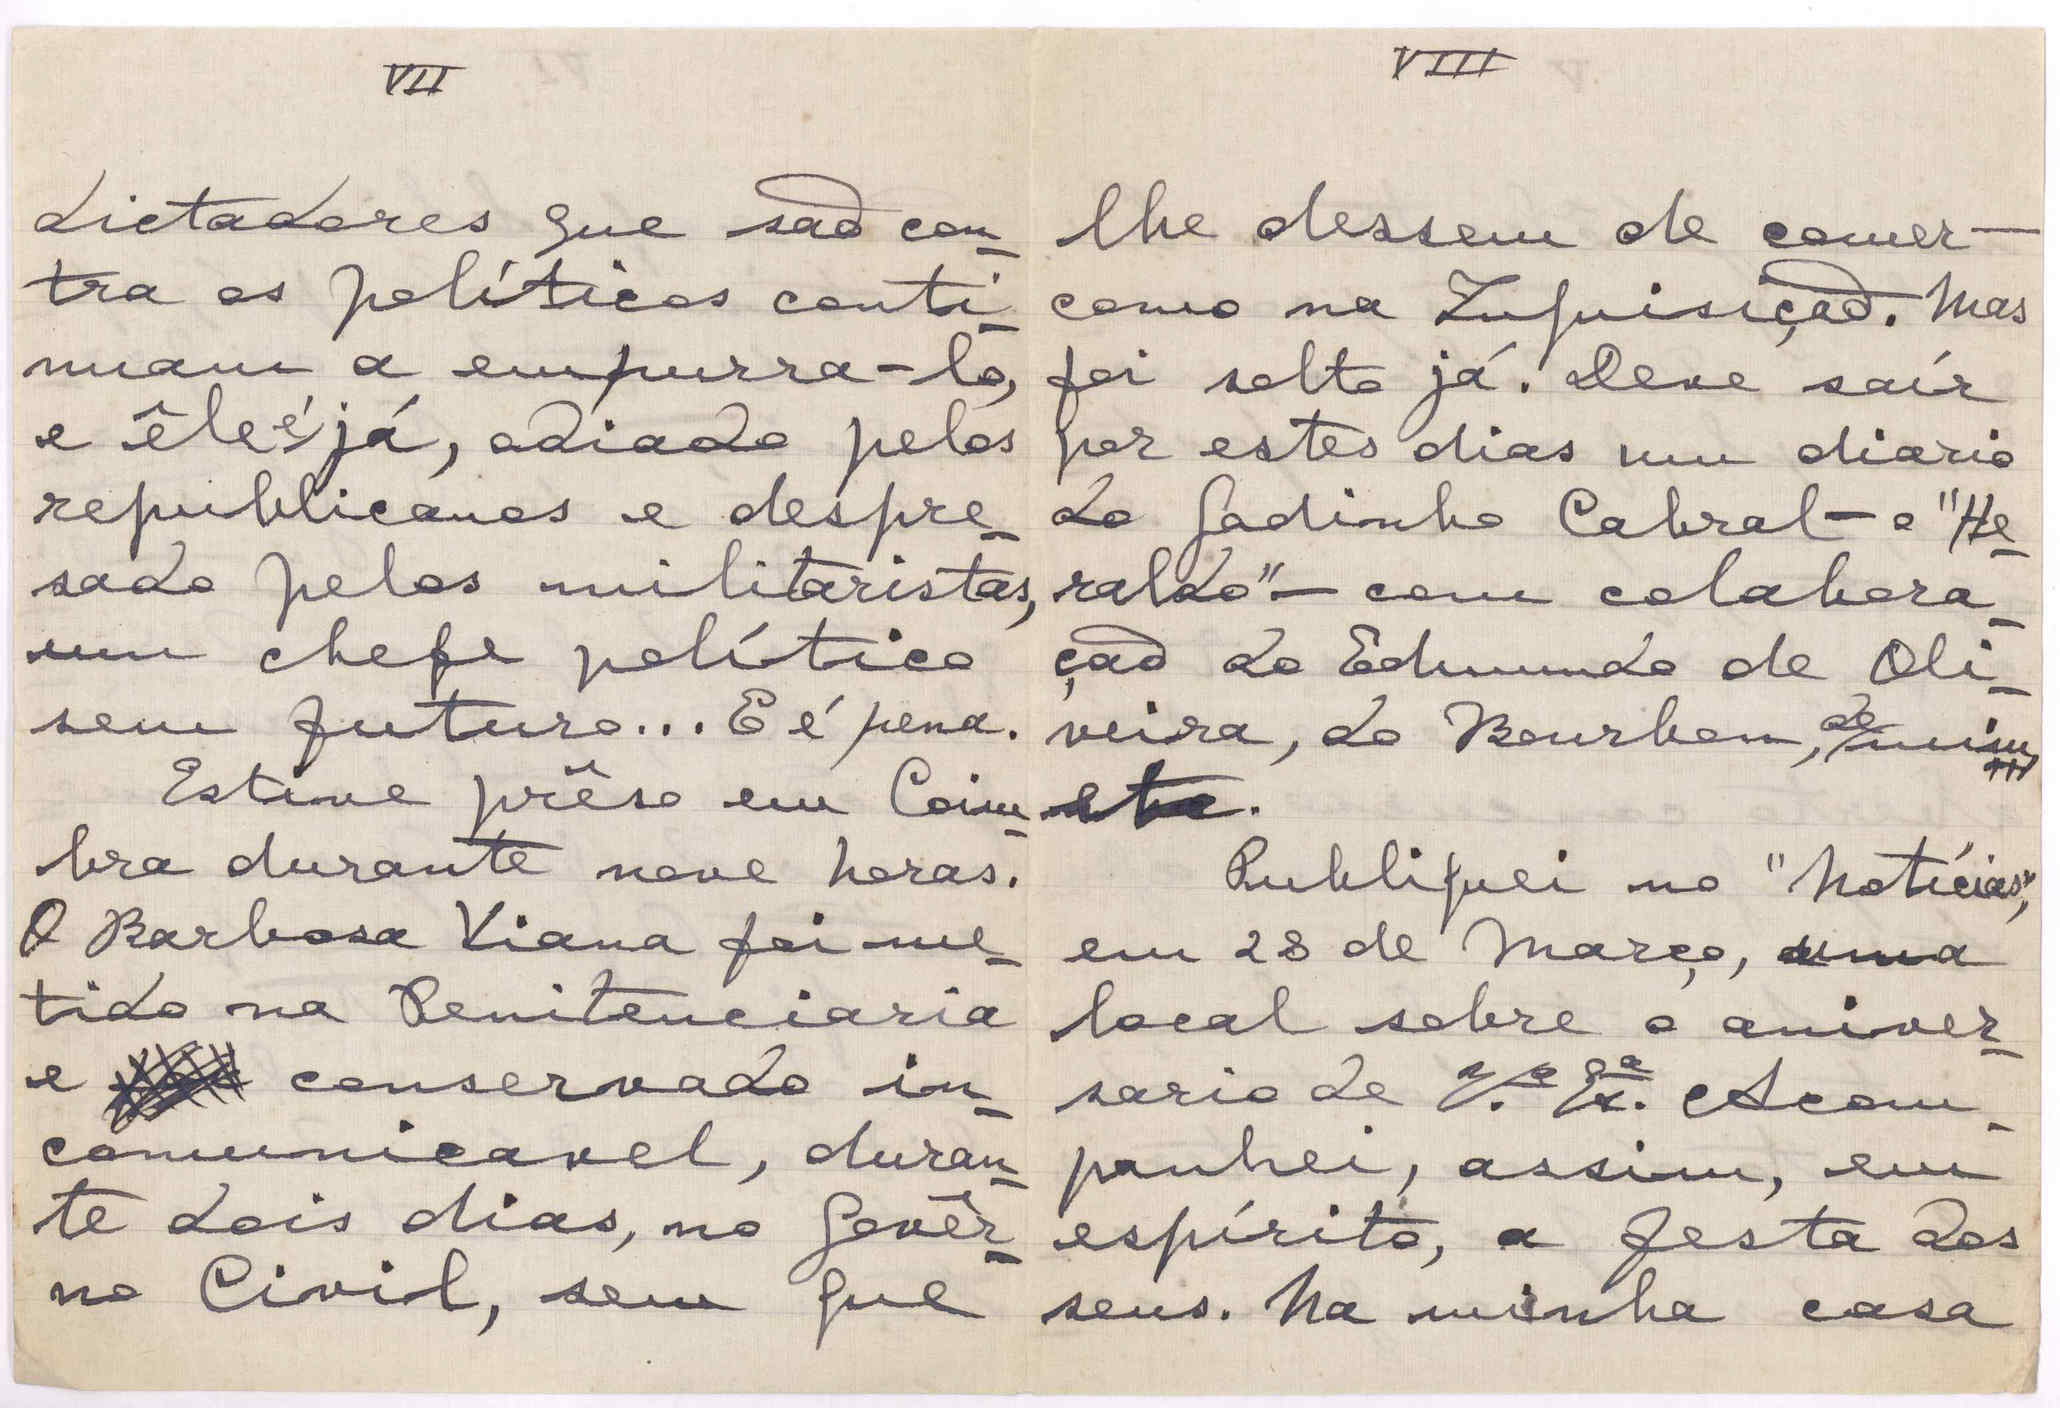 VII
dictadores que são con-
tra os políticos conti-
nuam a empurra-lo,
e êle é já, odiado pelos
republicanos e despre-
sado pelos militaristas,
um chefe político
sem futuro... E é pena.
Estive prêso em Coim-
bra durante nove horas.
O Barbosa Viana foi me-
tido na Penitenciaria
e conservado in-
comunicavel, duran-
te dois dias, no Govêr-
no Civil, sem que
VIII
lhe dessem de comer —
como na Inquisição. Mas
foi solto já. Deve saír
por estes dias um diario
do Godinho Cabral — o "He-
raldo" — com colabora-
ção do Edmundo de Oli-
veira, do Bourbon, de mim
etc.
Publiquei no "Notícias",
em 28 de Março, uma
local sobre o aniver-
sario de V.ª Ex.ª. Acom-
panhei, assim, em
espírito, a festa dos
seus. Na minha casa